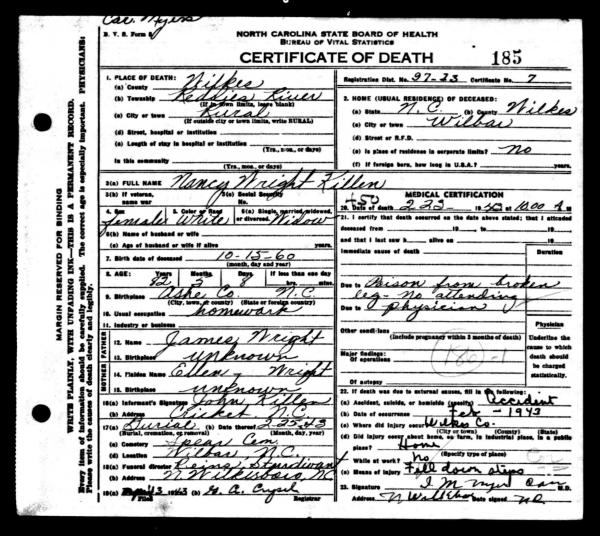 Car. Myers
B. V. S. Form
NORTH CAROLINA STATE BOARD OF HEALTH
BUREAU OF VITAL STATISTICS
CERTIFICATE OF DEATH
185
Registration Dist. No. 97-23 Certificate No. 7
1. PLACE OF DEATH:
(a) County Wilkes
(b) Township Reddies River
(If in town limits, leave blank)
(c) City or town Rural
(If outside city or town limits, write RURAL)
(d) Street, hospital or institution
(e) Length of stay in hospital or institution
(Yrs., mos. or days)
In this community
(Yrs., mos. or days)
2. HOME (USUAL RESIDENCE) OF DECEASED:
(a) State N.C. (b) County Wilkes
(c) City or town Wilbar
(d) Street or R.F.D.
(e) Is place of residence in corporate limits? No
(f) If foreign born, how long in U.S.A.?
3(a) FULL NAME Nancy Wright Killen
3(b) If veteran, name war
3(c) Social Security No.
4. Sex Female
5. Color or Race White
6(a) Single, married, widowed, or divorced. Widow
6(b) Name of husband or wife
6(c) Age of husband or wife if alive years
7. Birth date of deceased 10-15-60
(month, day and year)
8. AGE: Years 82 Months 3 Days 8 If less than one day hrs. min.
9. Birthplace Ashe Co. N.C.
(City, town, or county) (State or foreign country)
10. Usual occupation homework
11. Industry or business
FATHER
12. Name James Wright
13. Birthplace unknown
MOTHER
14. Maiden Name Ellen Wright
15. Birthplace unknown
16(a) Informant's Signature John Killen
(b) Address Cricket, N.C.
17(a) Burial (b) Date thereof 2-25-43
(Burial, cremation, or removal) (Month, day, year)
(c) Cemetery Spear Cem.
(d) Location Wilbar, N.C.
18(a) Funeral director Reins Sturdivant
(b) Address N. Wilkesboro, N.C.
19(a) 1943 (b)
Filed Registrar
MEDICAL CERTIFICATION
20. Date of death 2-23- 1943 at 10:00 M
21. I certify that death occurred on the date above stated; that I attended
deceased from 19 to 19
and that I last saw h alive on 19
Immediate cause of death
Duration
Due to Poison from broken
leg - No attending
Due to physician
Other conditions
(Include pregnancy within 3 months of death)
Major findings:
Of operation
Of autopsy
186-1
Physician
Underline the cause to which death should be charged statistically.
22. If death was due to external causes, fill in the following:
(a) Accident, suicide, or homicide (specify) Accident
(b) Date of occurrence Feb - 1943
(c) Where did injury occur? Wilkes Co.
(City or town) (County) (State)
(d) Did injury occur about home, on farm, in industrial place, in a public
place? Home
(Specify type of place)
While at work? No
(e) Means of injury Fell down steps
23. Signature I M Myers Car M.D.
Address N Wilkesboro Date signed NC
MARGIN RESERVED FOR BINDING
WRITE PLAINLY, WITH UNFADING INK—THIS IS A PERMANENT RECORD.
Every item of information should be carefully supplied. The correct age is especially important. PHYSICIANS:
Please write the causes of death clearly and legibly.